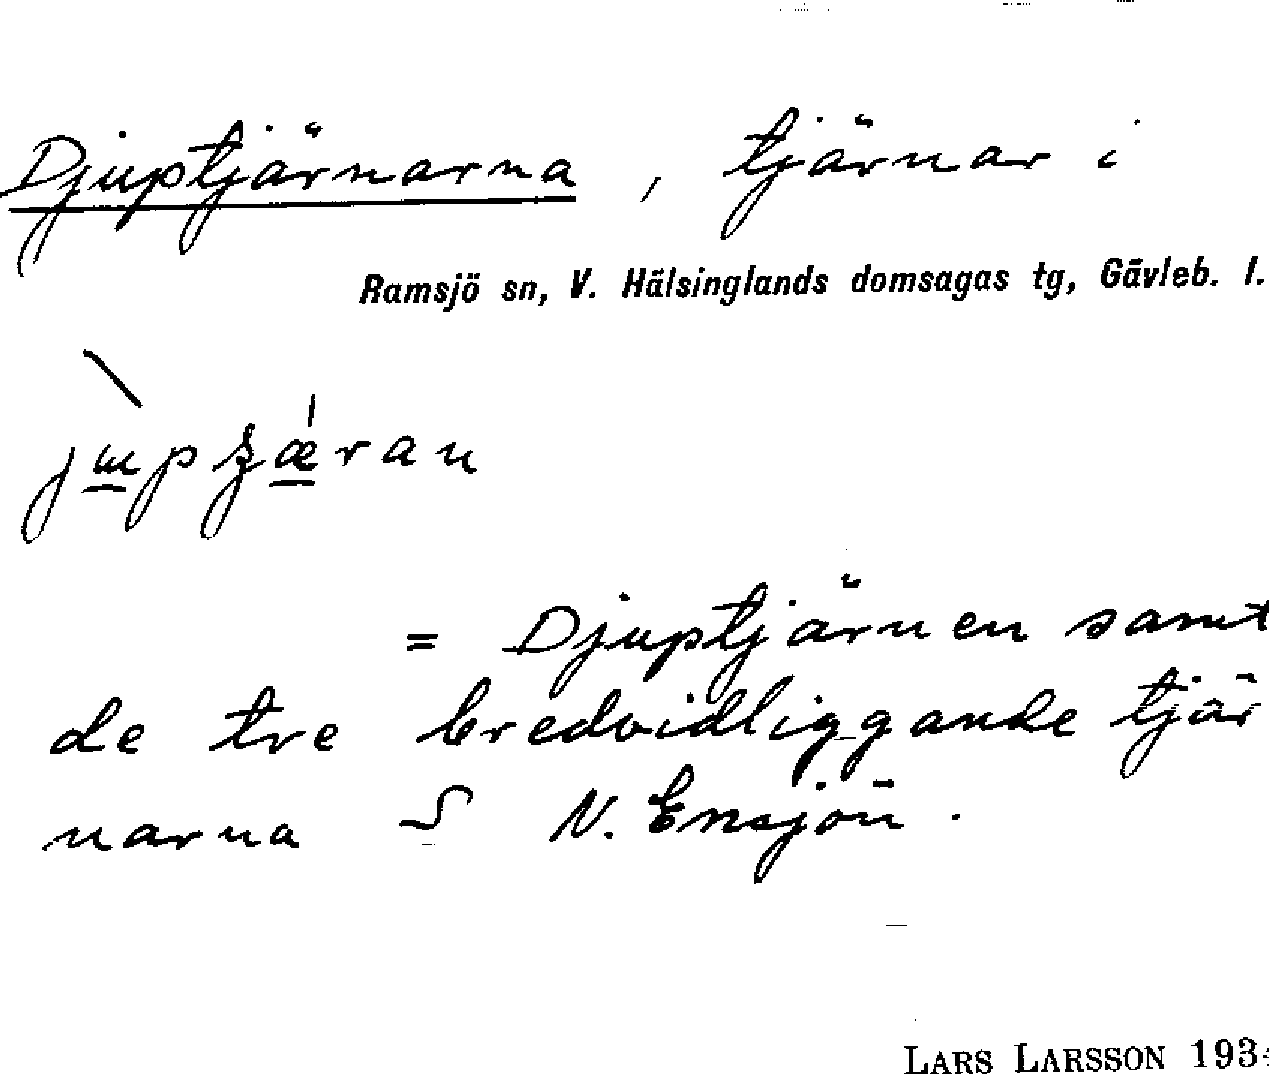 Djuptjärnarna, tjärnar i
Ramsjö sn, V. Hälsinglands domsagas tg, Gävleb. l.
= Djuptjärnen samt
de tre bredvidliggande tjär
narna S N. Ensjön.
LARS LARSSON 193